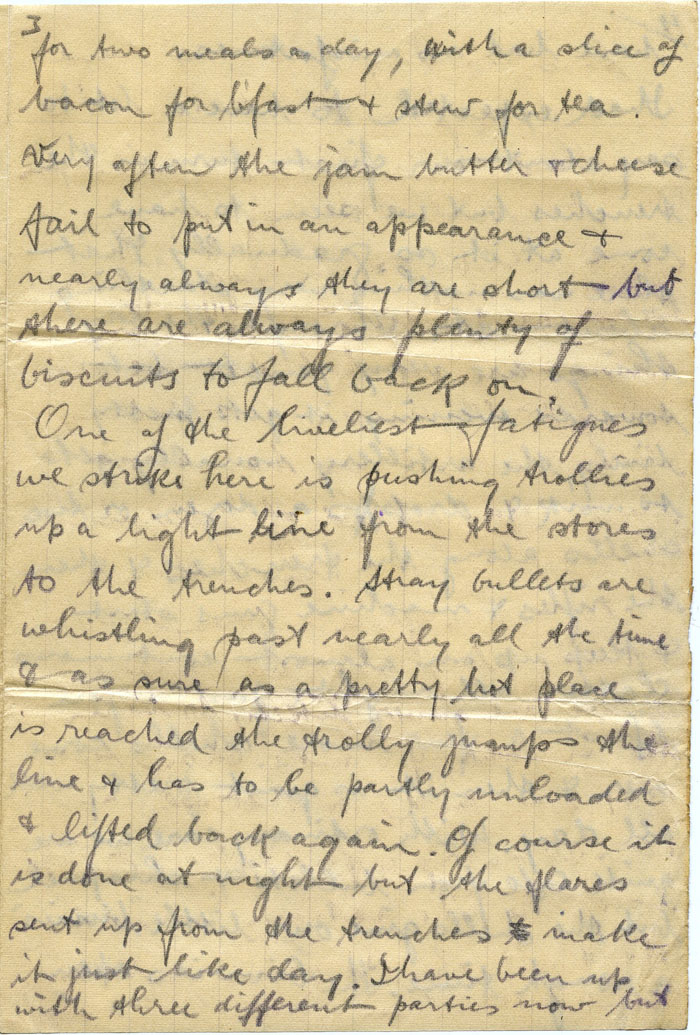 3
for two meals a day, with a slice of
bacon for b'fast & stew for tea.
Very often the jam butter & cheese
fail to put in an appearance &
nearly always they are short but
there are always plenty of
biscuits to fall back on.
One of the liveliest fatigues
we strike here is pushing trollies
up a light line from the stores
to the trenches. Stray bullets are
whistling past nearly all the time
& as sure as a pretty hot place
is reached the trolly jumps the
line & has to be partly unloaded
& lifted back again. Of course it
is done at night but the flares
sent up from the trenches make
it just like day. I have been up
with three different parties now but